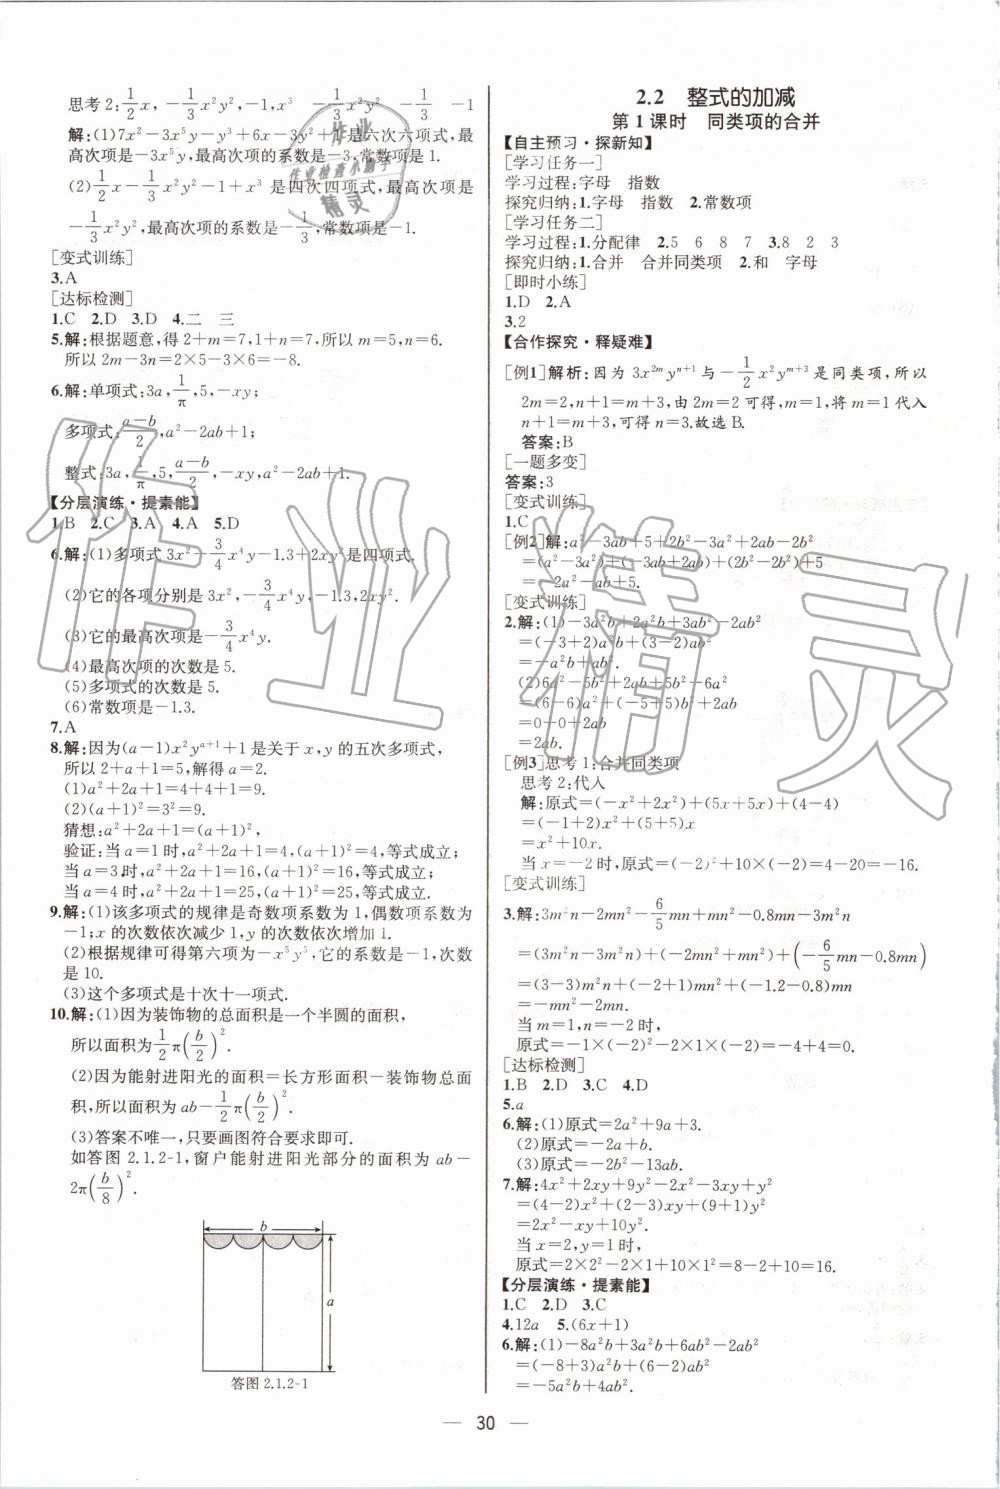 思考2:1/2x,-1/3x²y²,-1,x³ -1/3x²y² -1/3 -1
解:(1)7x²-3x⁵y-y³+6x-3y²+1是六次六项式,最
高次项是-3x⁵y,最高次项的系数是-3,常数项是1.
(2)1/2x-1/3x²y²-1+x³是四次四项式,最高次项是
-1/3x²y²,最高次项的系数是-1/3,常数项是-1.
[变式训练]
3.A
[达标检测]
1.C 2.D 3.D 4.二 三
5.解:根据题意,得2+m=7,1+n=7,所以m=5,n=6.
所以2m-3n=2×5-3×6=-8.
6.解:单项式:3a,1/π,5,-xy;
多项式:(a-b)/2,a²-2ab+1;
整式:3a,1/π,5,(a-b)/2,-xy,a²-2ab+1.
【分层演练·提素能】
1.B 2.C 3.A 4.A 5.D
6.解:(1)多项式3x²-3/4x⁴y-1.3+2xy²是四项式.
(2)它的各项分别是3x²,-3/4x⁴y,-1.3,2xy².
(3)它的最高次项是-3/4x⁴y.
(4)最高次项的次数是5.
(5)多项式的次数是5.
(6)常数项是-1.3.
7.A
8.解:因为(a-1)x²yᵃ⁺¹+1是关于x,y的五次多项式,
所以2+a+1=5,解得a=2.
(1)a²+2a+1=4+4+1=9.
(2)(a+1)²=3²=9.
猜想:a²+2a+1=(a+1)²,
验证:当a=1时,a²+2a+1=4,(a+1)²=4,等式成立;
当a=3时,a²+2a+1=16,(a+1)²=16,等式成立;
当a=4时,a²+2a+1=25,(a+1)²=25,等式成立.
9.解:(1)该多项式的规律是奇数项系数为1,偶数项系数为
-1;x的次数依次减少1,y的次数依次增加1.
(2)根据规律可得第六项为-x⁵y⁵,它的系数是-1,次数
是10.
(3)这个多项式是十次十一项式.
10.解:(1)因为装饰物的总面积是一个半圆的面积,
所以面积为1/2π(b/2)².
(2)因为能射进阳光的面积=长方形面积-装饰物总面
积,所以面积为ab-1/2π(b/2)².
(3)答案不唯一,只要画图符合要求即可.
如答图2.1.2-1,窗户能射进阳光部分的面积为ab-
2π(b/8)².
b
a
答图2.1.2-1
2.2 整式的加减
第1课时 同类项的合并
【自主预习·探新知】
[学习任务一]
学习过程:字母 指数
探究归纳:1.字母 指数 2.常数项
[学习任务二]
学习过程:1.分配律 2.5 6 8 7 3.8 2 3
探究归纳:1.合并 合并同类项 2.和 字母
[即时小练]
1.D 2.A
3.2
【合作探究·释疑难】
[例1]解析:因为3x²ᵐyⁿ⁺¹与-1/2x²yᵐ⁺³是同类项,所以
2m=2,n+1=m+3,由2m=2可得,m=1,将m=1代入
n+1=m+3,可得n=3.故选B.
答案:B
[一题多变]
答案:3
[变式训练]
1.C
[例2]解:a²-3ab+5+2b²-3a²+2ab-2b²
=(a²-3a²)+(-3ab+2ab)+(2b²-2b²)+5
=-2a²-ab+5.
[变式训练]
2.解:(1)-3a²b+2a²b+3ab²-2ab²
=(-3+2)a²b+(3-2)ab²
=-a²b+ab².
(2)6a²-5b²+2ab+5b²-6a²
=(6-6)a²+(-5+5)b²+2ab
=0+0+2ab
=2ab.
[例3]思考1:合并同类项
思考2:代入
解:原式=(-x²+2x²)+(5x+5x)+(4-4)
=(-1+2)x²+(5+5)x
=x²+10x.
当x=-2时,原式=(-2)²+10×(-2)=4-20=-16.
[变式训练]
3.解:3m²n-2mn²-6/5mn+mn²-0.8mn-3m²n
=(3m²n-3m²n)+(-2mn²+mn²)+(-6/5mn-0.8mn)
=(3-3)m²n+(-2+1)mn²+(-1.2-0.8)mn
=-mn²-2mn.
当m=1,n=-2时,
原式=-1×(-2)²-2×1×(-2)=-4+4=0.
[达标检测]
1.B 2.D 3.C 4.D
5.a
6.解:(1)原式=2a²+9a+3.
(2)原式=2a+b.
(3)原式=-2b²-13ab.
7.解:4x²+2xy+9y²-2x²-3xy+y²
=(4-2)x²+(2-3)xy+(9+1)y²
=2x²-xy+10y².
当x=2,y=1时,
原式=2×2²-2×1+10×1²=8-2+10=16.
【分层演练·提素能】
1.C 2.D 3.C
4.12a 5.(6x+1)
6.解:(1)-8a²b+3a²b+6ab²-2ab²
=(-8+3)a²b+(6-2)ab²
=-5a²b+4ab².
— 30 —
作业
作业检查小助手
精灵
作业精灵